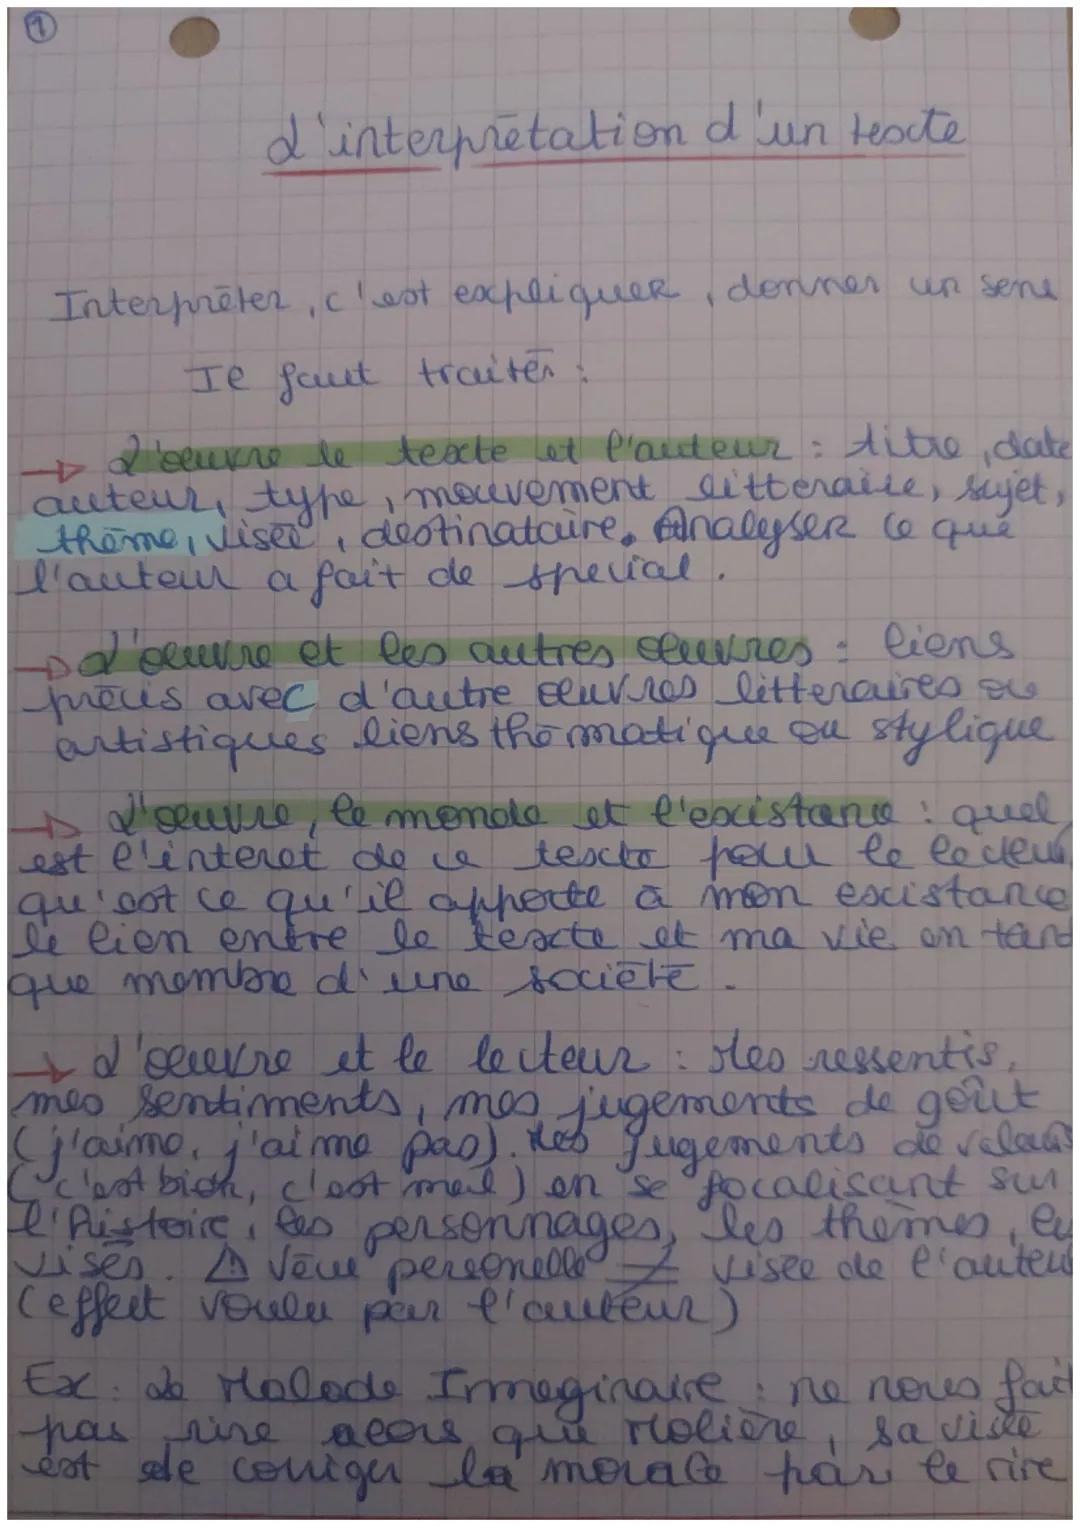 1
L'interprétation d'un texte
Interpréter, c'est expliquer, donner un sens
Il faut traiter :
→ L'œuvre le texte et l'auteur : titre, date
auteur, type, mouvement litteraire, sujet,
thème, visée, destinataire. Analyser ce que
l'auteur a fait de special.
→ L'œuvre et les autres œuvres : liens
précis avec d'autre œuvres litteraires ou
artistiques liens thématique ou stylique
→ L'œuvre, le monde et l'existance : quel
est l'interet de ce texte pour le lecteur
qu'est ce qu'il apporte à mon existance
le lien entre le texte et ma vie en tant
que membre d'une société.
→ L'œuvre et le lecteur : Mes ressentis,
mes sentiments, mes jugements de goût
(j'aime, j'aime pas). Mes jugements de valeurs
(c'est bien, c'est mal) en se focalisant sur
l'histoire, les personnages, les thèmes, les
visés. ⚠ Vue personelle ≠ visée de l'auteur
(effect voulu par l'auteur)
Ex : Le Malade Immaginaire : ne nous fait
pas rire alors que Molière, sa visée
est de corriger la morale par le rire